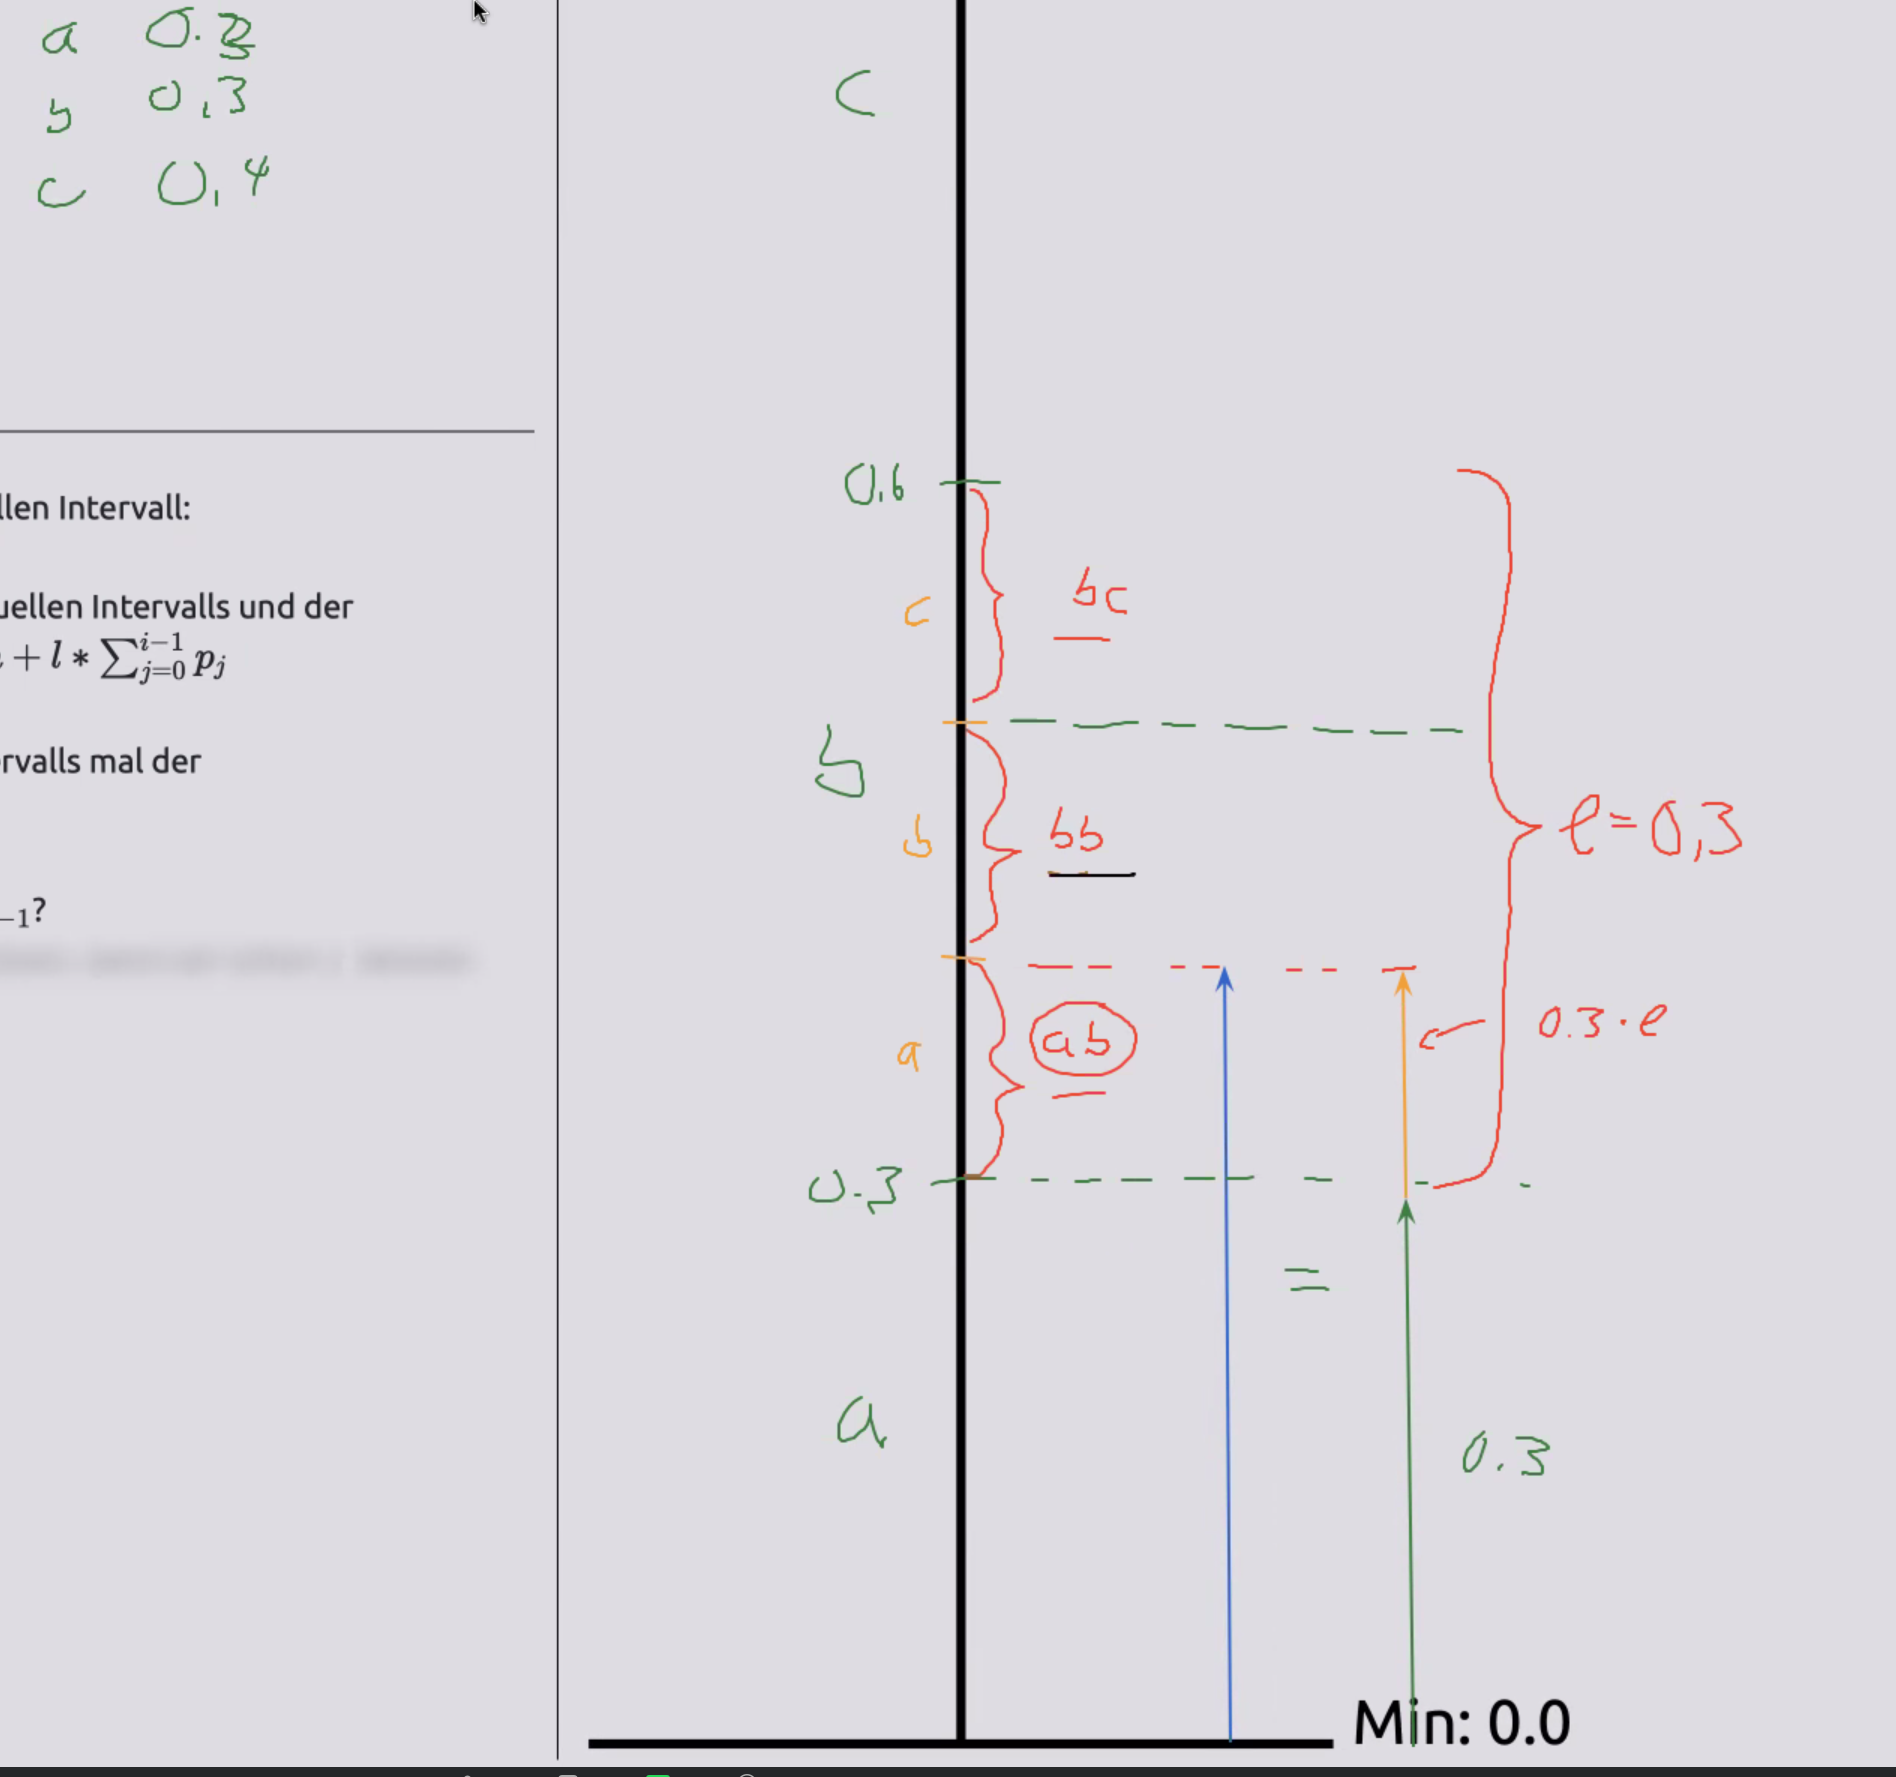 a 0.3
b 0,3
c 0,4
llen Intervall:
uellen Intervalls und der
+ l * ∑_{j=0}^{i−1} p_j
rvalls mal der
−1?
c
0,6
c
bc
b
b
bb
l = 0,3
a
ab
0.3 · l
0.3
=
a
0.3
Min: 0.0